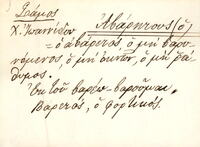 Σάμος
Χ. Ἰωαννίδου
Ἀβάρητους (ὁ)
= ὁ ἀβάρετος, ὁ μὴ βαρυ-
νόμενος, ὁ μὴ ὀκνῶν, ὁ μὴ ῥᾴ-
θυμος.
Ἐκ τοῦ βαρέω - βαροῦμαι.
Βαρετός, ὁ φορτικός.